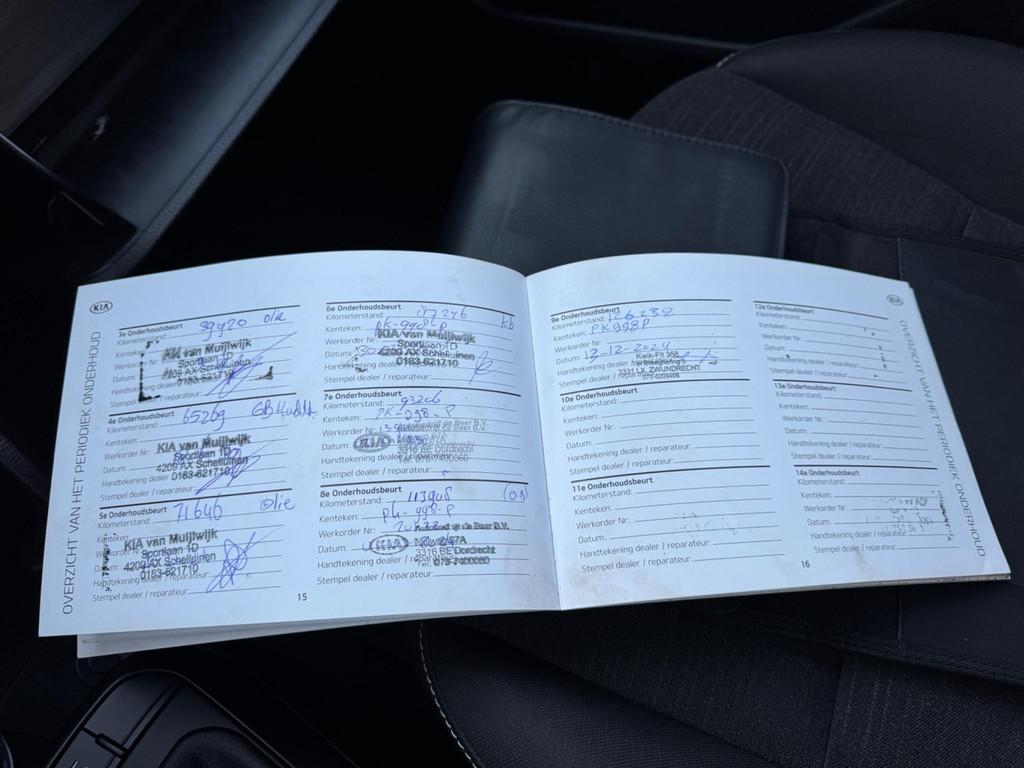 KIA
OVERZICHT VAN HET PERIODIEK ONDERHOUD
3e Onderhoudsbeurt
Kilometerstand: 39920 olie
KIA van Muijlwijk
Sportlaan 1D
4209 AX Schelluinen
0183-621710
Stempel dealer / reparateur:
4e Onderhoudsbeurt
Kilometerstand: 65269
Kenteken:
KIA van Muijlwijk
Sportlaan 1D
4209 AX Schelluinen
Datum:
Handtekening dealer 0183-621710
Stempel dealer / reparateur:
5e Onderhoudsbeurt
Kilometerstand: 71646 olie
Kenteken:
KIA van Muijlwijk
Sportlaan 1D
4209 AX Schelluinen
0183-621710
Stempel dealer / reparateur:
15
6e Onderhoudsbeurt
Kilometerstand: 87246
Kenteken: PK-998-P
KIA van Muijlwijk
Sportlaan 1D
Datum:
4209 AX Schelluinen
0183-621710
Stempel dealer / reparateur:
7e Onderhoudsbeurt
Kilometerstand: 93206
Kenteken: PK-998-P
Werkorder Nr:
de Beer B.V.
KIA
3316 BE Dordrecht
Stempel dealer / reparateur:
8e Onderhoudsbeurt
Kilometerstand: 113908
Kenteken: PK-998-P
Werkorder Nr:
de Beer B.V.
Datum:
KIA
3316 BE Dordrecht
Handtekening dealer / reparateur:
Tel. 078-7400060
Stempel dealer / reparateur:
9e Onderhoudsbeurt
Kilometerstand: 126232
Kenteken: PK998P
Werkorder Nr:
Datum: 12-12-2024
Kwik-Fit 358
Handtekening dealer
3331 LX ZWIJNDRECHT
Stempel dealer / reparateur:
10e Onderhoudsbeurt
Kilometerstand:
Kenteken:
Werkorder Nr:
Datum:
Handtekening dealer / reparateur:
Stempel dealer / reparateur:
11e Onderhoudsbeurt
Kilometerstand:
Kenteken:
Werkorder Nr:
Datum:
Handtekening dealer / reparateur:
Stempel dealer / reparateur:
16
12e Onderhoudsbeurt
Kilometerstand:
Kenteken:
Werkorder Nr:
Datum:
Handtekening dealer / reparateur:
Stempel dealer / reparateur:
13e Onderhoudsbeurt
Kilometerstand:
Kenteken:
Werkorder Nr:
Datum:
Handtekening dealer / reparateur:
Stempel dealer / reparateur:
14e Onderhoudsbeurt
Kilometerstand:
Kenteken:
Werkorder Nr:
Datum:
Handtekening dealer / reparateur:
Stempel dealer / reparateur:
KIA
OVERZICHT VAN HET PERIODIEK ONDERHOUD